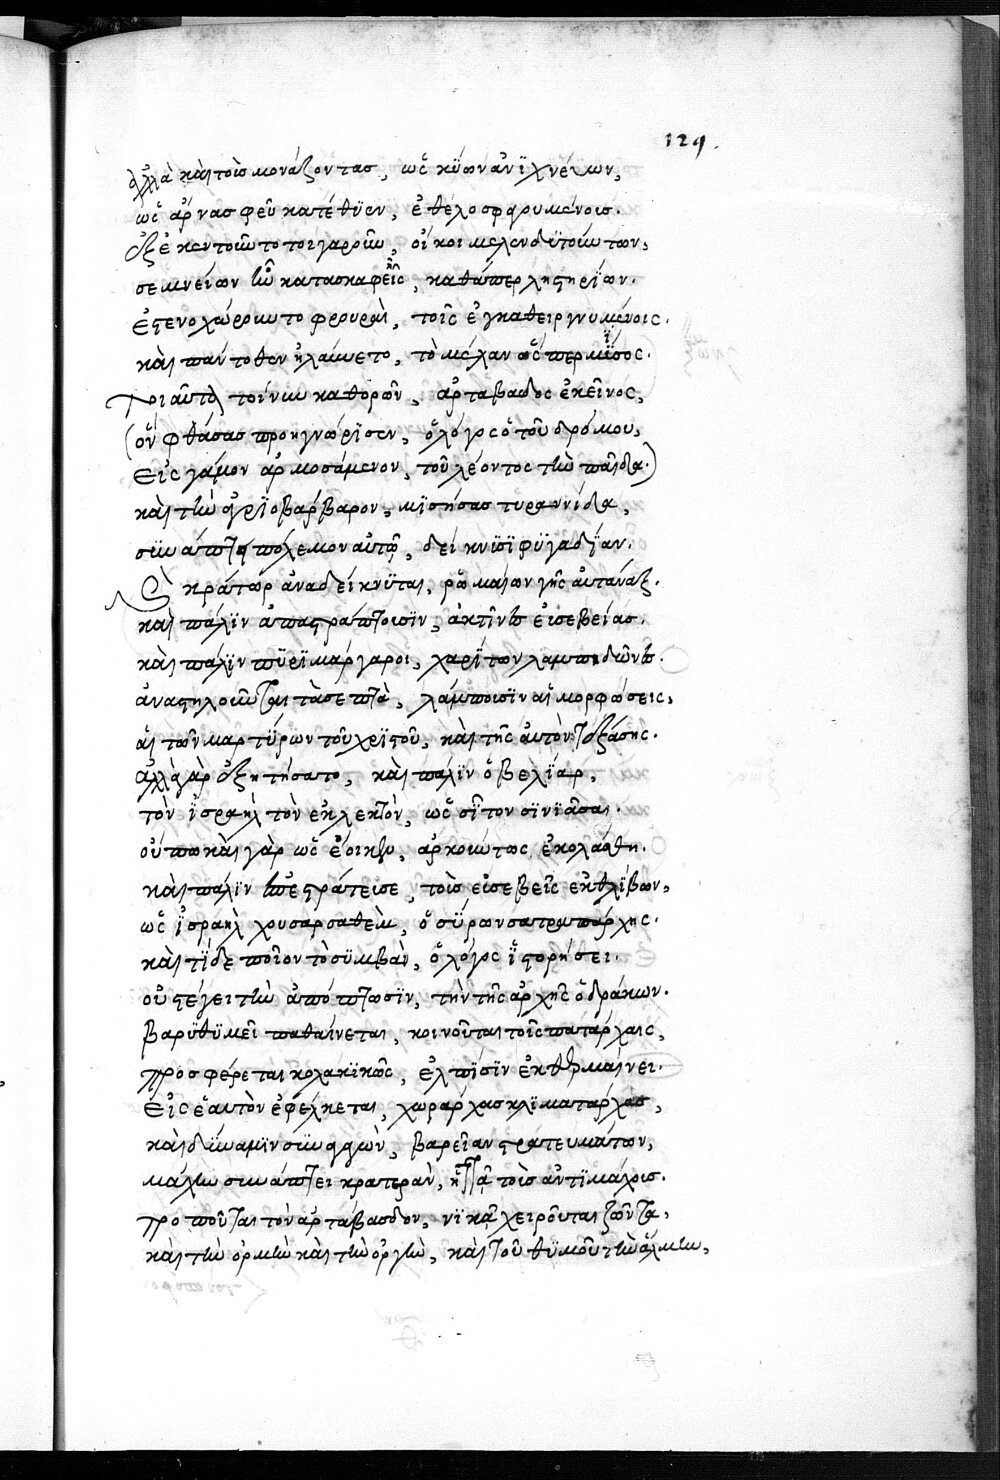 129.
ἀλλὰ καὶ τοὺς μονάζοντας, ὡς κύων ἀνϊχνεύων,
ὡς ἄρνας φεῦ κατέθϋεν, ἐθελοσφαγουμένους.
ἐξεκενοῦντο τοιγαροῦν, οἱ οἶκοι μελενδϋτούντων,
σεμνείων ἦν κατασκαφὴ, καθάπερ λῃστηρίων.
ἐστενοχώρουντο φρουραὶ, τοῖς ἐγκαθειργνυμένοις.
καὶ πάντοθεν ἠλαύνετο, τὸ μέλαν ὥσπερ μῖσος.
τοιαῦτα τοίνυν καθορῶν, ἀρτάβασδος ἐκεῖνος,
(ὃν φθάσας προεγνώρϊσεν, ὁ λόγος ὁ τοῦ δρόμου,
εἰς γάμον ἁρμοσάμενον, τοῦ λέοντος τὴν παῖδα.)
καὶ τὴν ἀγρϊοβάρβαρον, μϊσήσας τυραννίδα,
σϋνάπτει πόλεμον αὐτῷ, δείκνϋσϊ φϋγαδίαν.
αὐτοκράτωρ ἀναδείκνϋται, ῥωμαίων γῆς αὐτάναξ.
καὶ πάλϊν ἀπαστράπτουσϊν, ἀκτῖνες εὐσεβείας.
καὶ πάλϊν πϋρϊμάργαροι, χαρίτων λαμπηδῶνες.
ἀναστηλοῦνται τὰ σεπτὰ, λάμπουσϊν αἱ μορφώσεις,
αἱ τῶν μαρτύρων τοῦ χρϊστοῦ, καὶ τῆς αὐτὸν τεξάσης.
ἀλλὰ γὰρ ἐξητήσατο, καὶ πάλϊν ὁ βελίαρ,
τὸν ἰσραὴλ τὸν ἐκλεκτὸν, ὡς σῖτον σϊνϊάσαι.
οὔπω καὶ γὰρ ὡς ἔοικεν, ἀρκούντως ἐκολάσθη.
καὶ πάλϊν ἐπεστράτευσε, τοὺς εὐσεβεῖς ἐκθλίβων,
ὡς ἰσραὴλ χουσαρσαθὲμ, ὁ σύρων σατραπάρχης.
καὶ τί δὲ ποῖον τὸ σϋμβὰν, ὁ λόγος ἱστορήσει.
οὐ στέγει τὴν ἀπόπτωσϊν, τὴν τῆς ἀρχῆς ὁ δράκων.
βαρϋθϋμεῖ παθαίνεται, κοινοῦται τοῖς πατάρχαις,
προσφέρεται κολακϊκῶς, ἐλπίσϊν ἐκθερμαίνει.
εἰς ἑαυτὸν ἐφέλκεται, χωράρχας κλϊματάρχας,
καὶ δύναμϊν σϋναγαγὼν, βαρεῖαν στρατευμάτων,
μάχην σϋνάπτει κρατερὰν, ἡττᾷ τοὺς ἀντϊμάχους.
τροποῦται τὸν ἀρτάβασδον, νϊκᾷ χειροῦται ζῶντα,
καὶ τὴν ὁρμὴν καὶ τὴν ὀργὴν, καὶ τοῦ θϋμοῦ τὴν ἅλμην,